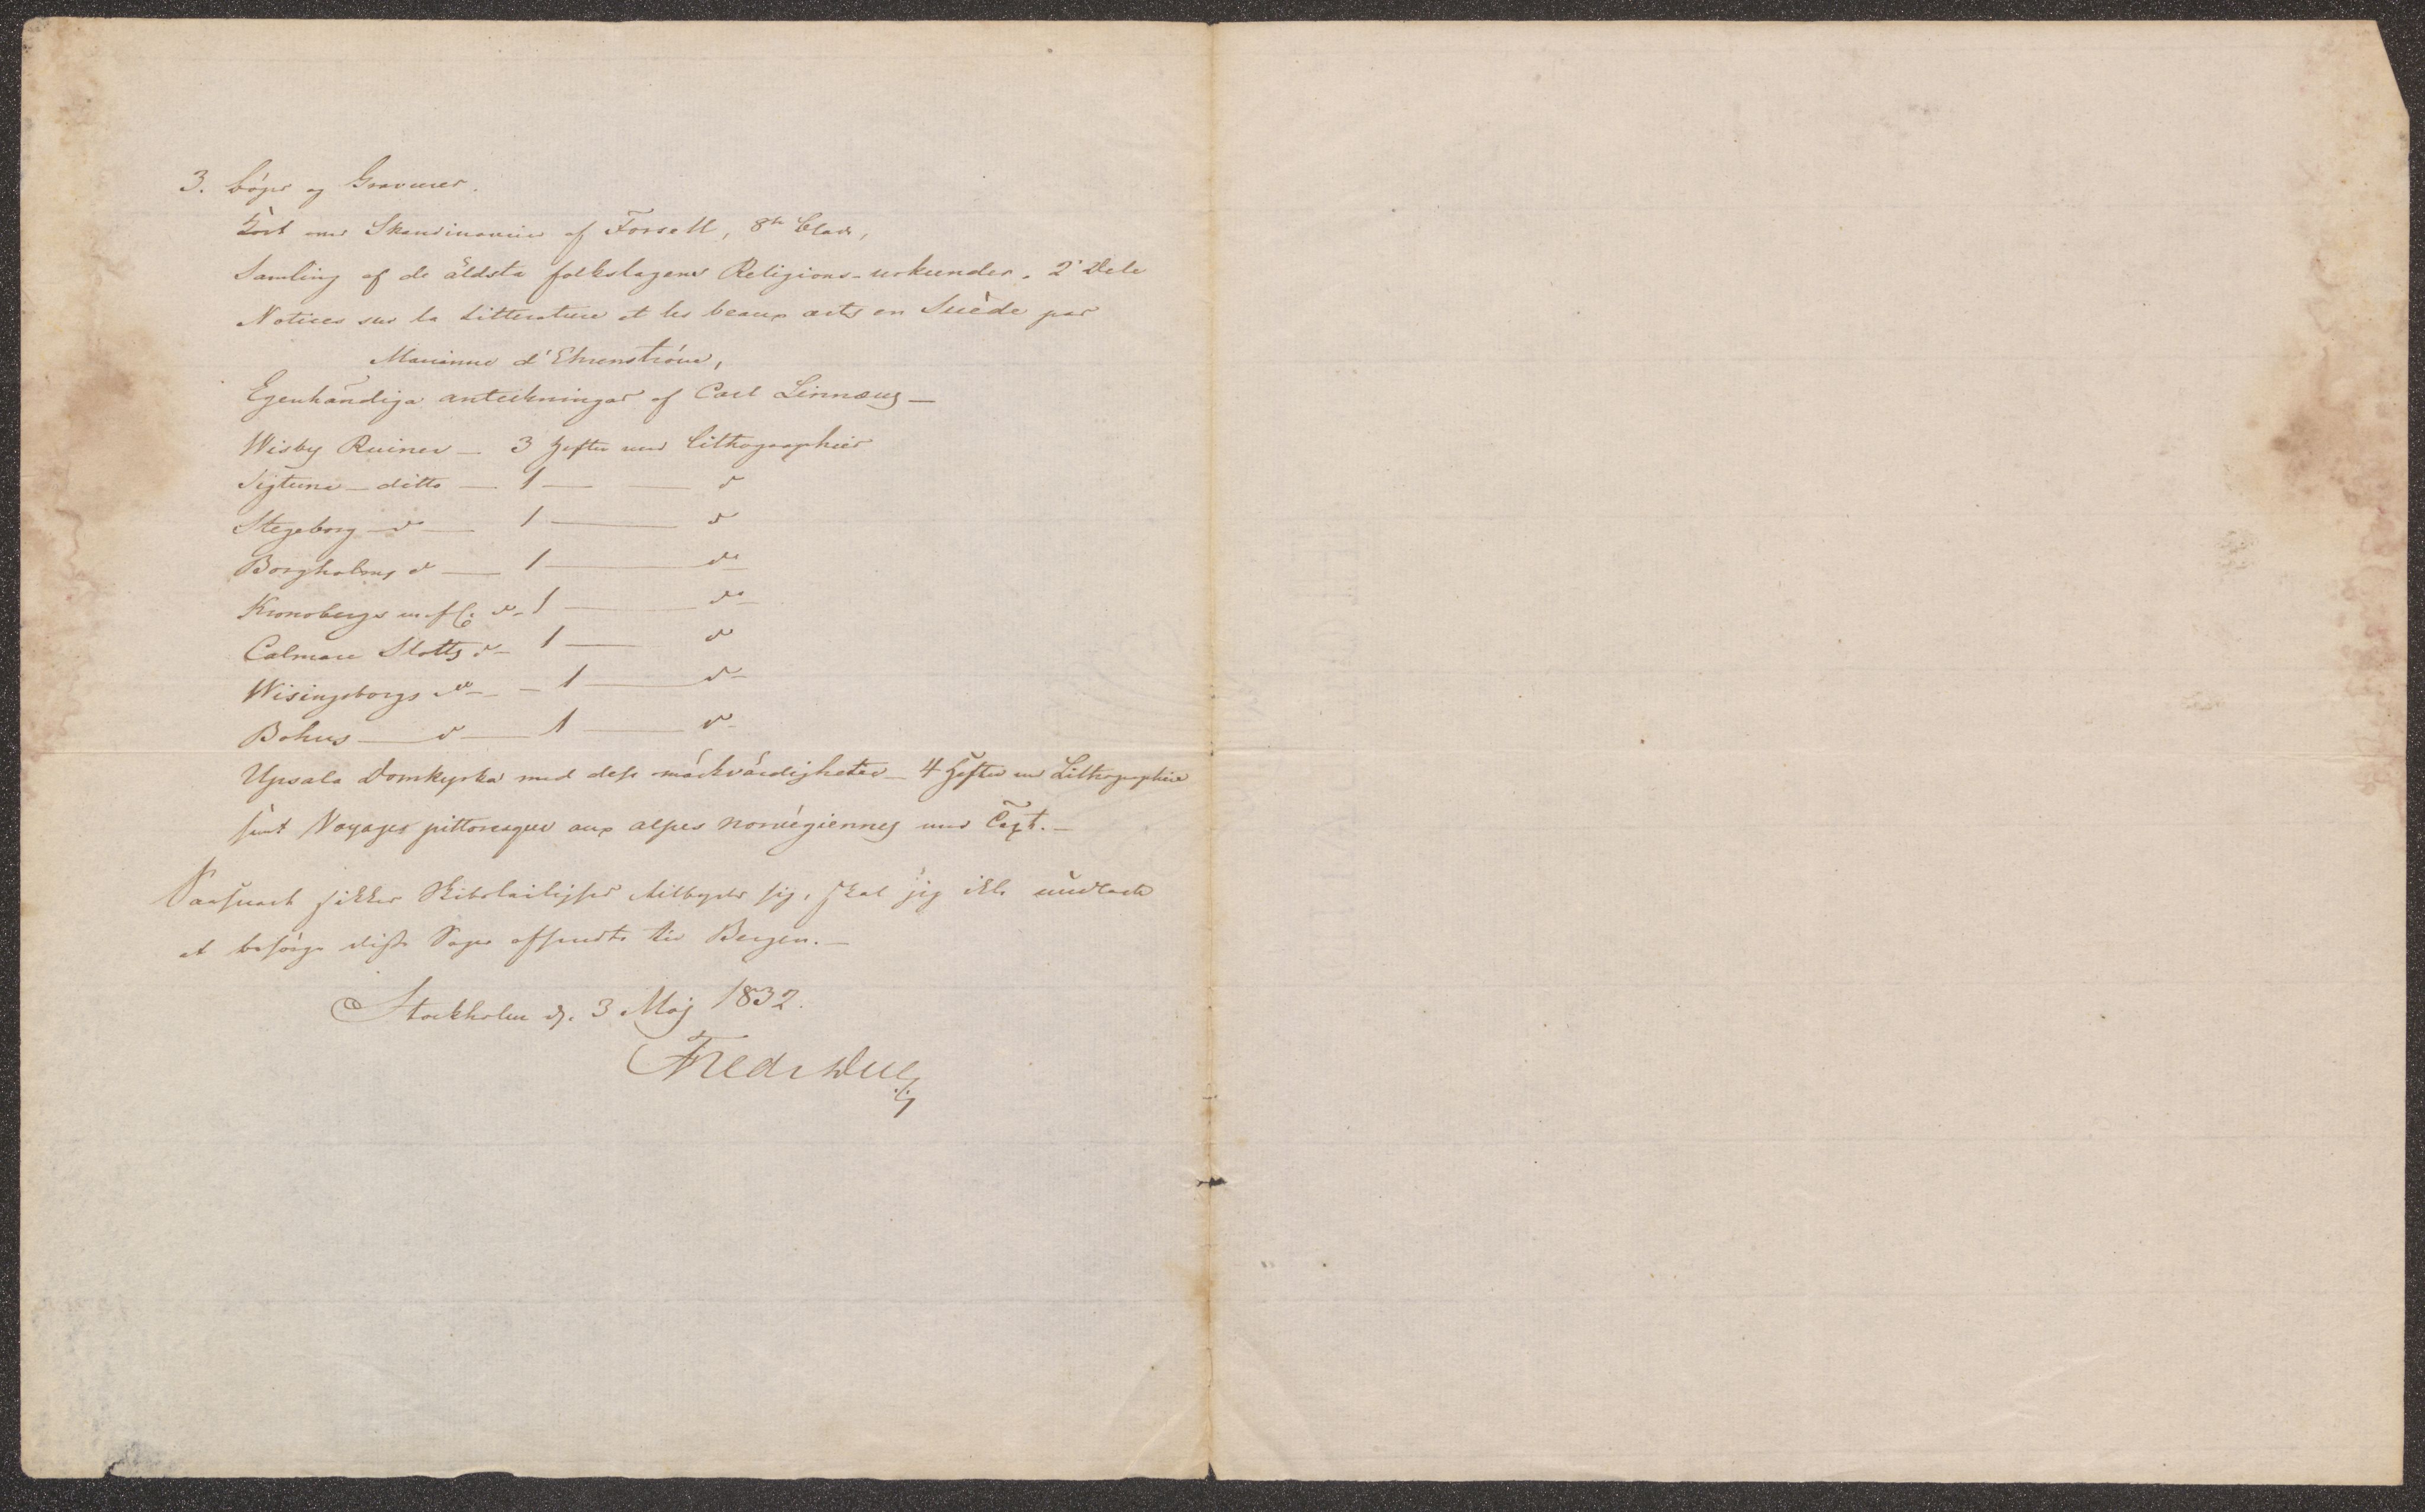 3. Bøger og Gravurer.
Kort over Skandinavien af Forsell, 8te Blade,
Samling af de äldsta folkslagens Religions-urkunder. 2 Dele
Notices sur la Litterature et les beaux arts en Suède par
Marianne d'Ehrenström,
Egenhändiga anteckningar af Carl Linnæus —
Wisby Ruiner — 3 Hefter med Lithographier
Sigtuna — ditto — 1 — — do
Stegeborg — do — 1 — do
Borgholms do — 1 — do
Kronobergs m. fl. do — 1 — do
Calmare Slotts do — 1 — do
Wisingsborgs do — 1 — do
Bohus — do — 1 — do
Upsala Domkyrka med dess märkvärdigheter — 4 Hefter med Lithographier
samt Voyages pittoresques aux alpes norvégiennes med Text. —
Saasnart sikker Skibsleilighed tilbyder sig, skal jeg ikke undlade
at besørge disse Sager afsendte til Bergen. —
Stockholm d. 3 Maj 1832.
Fredr Due